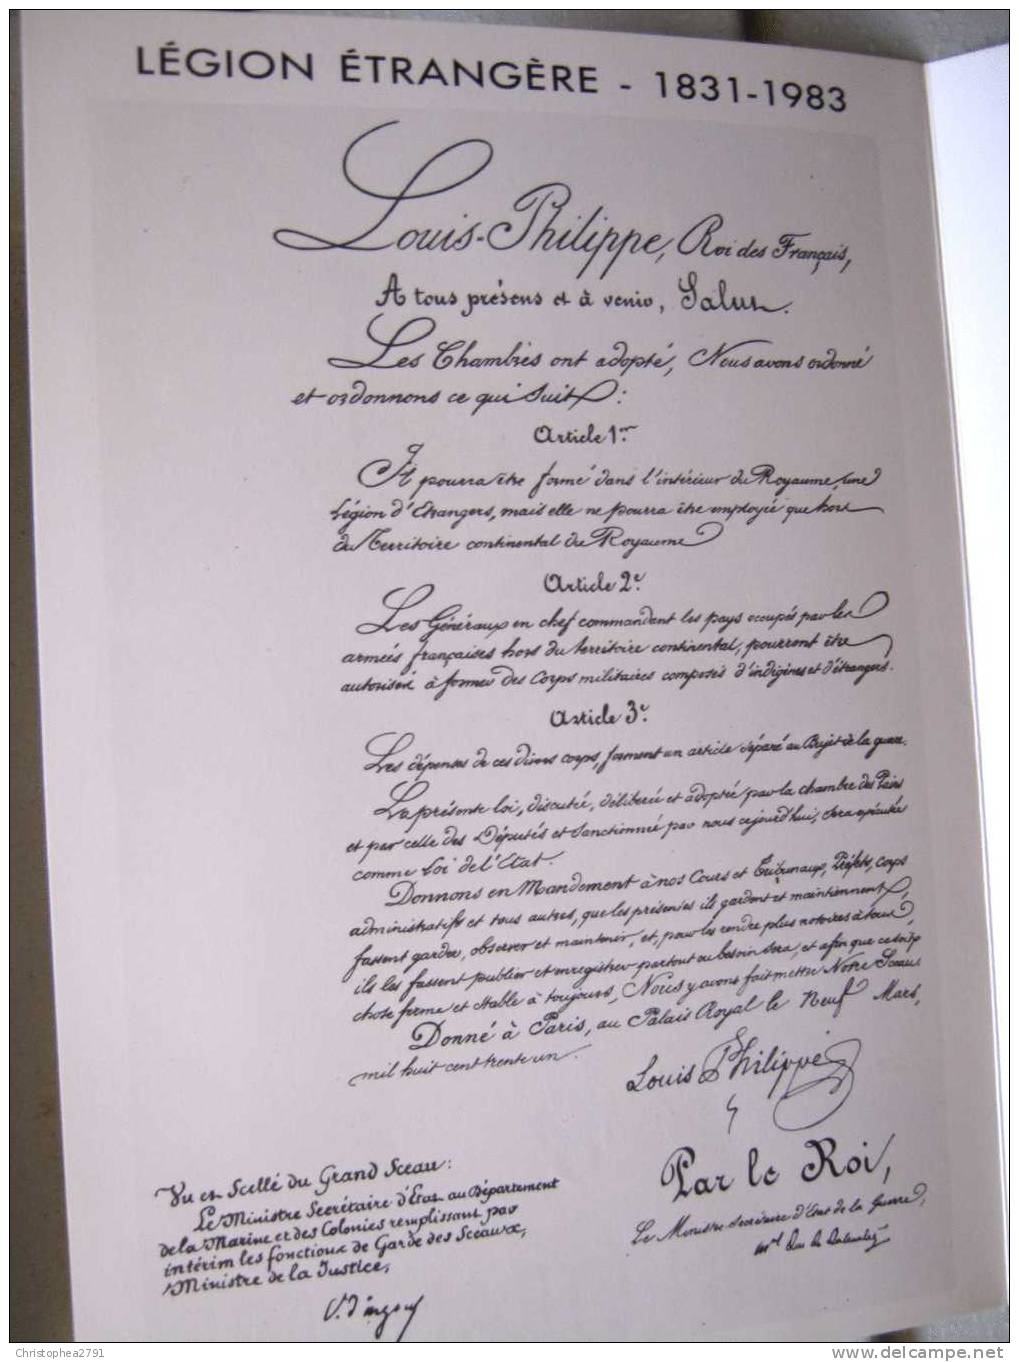 LÉGION ÉTRANGÈRE - 1831-1983
Louis-Philippe, Roi des Français,
A tous présens et à venir, Salut.
Les Chambres ont adopté, Nous avons ordonné
et ordonnons ce qui suit :
Article 1er
Il pourra être formé dans l'intérieur du Royaume, une
Légion d'Etrangers, mais elle ne pourra être employée que hors
du Territoire continental du Royaume
Article 2e
Les Généraux en chef commandant les pays occupés par les
armées françaises hors du territoire continental, pourront être
autorisés à former des Corps militaires composés d'indigènes et d'étrangers.
Article 3e
Les dépenses de ces divers corps, forment un article séparé au Bujet de la guerre.
La présente loi, discutée, délibérée et adoptée par la chambre des Pairs
et par celle des Députés et Sanctionnée par nous cejourd'hui, sera exécutée
comme Loi de l'Etat.
Donnons en Mandement à nos Cours et Tribunaux, Préfets, Corps
administratifs et tous autres, que les présentes ils gardent et maintiennent,
fassent garder, observer et maintenir, et, pour les rendre plus notoires à tous,
ils les fassent publier et enregistrer partout ou besoin sera, et afin que ce soit
chose ferme et stable à toujours, Nous y avons fait mettre Notre Sceau
Donné à Paris, au Palais Royal le Neuf Mars,
mil huit cent trente un.
Louis Philippe
Vu et Scellé du Grand Sceau :
Le Ministre Secrétaire d'Etat au Département
de la Marine et des Colonies remplissant par
intérim les fonctions de Garde des Sceaux,
Ministre de la Justice,
Par le Roi,
Le Ministre Secrétaire d'Etat de la Guerre,
Mal Duc de Dalmatie
Christophea2791
www.delcampe.net